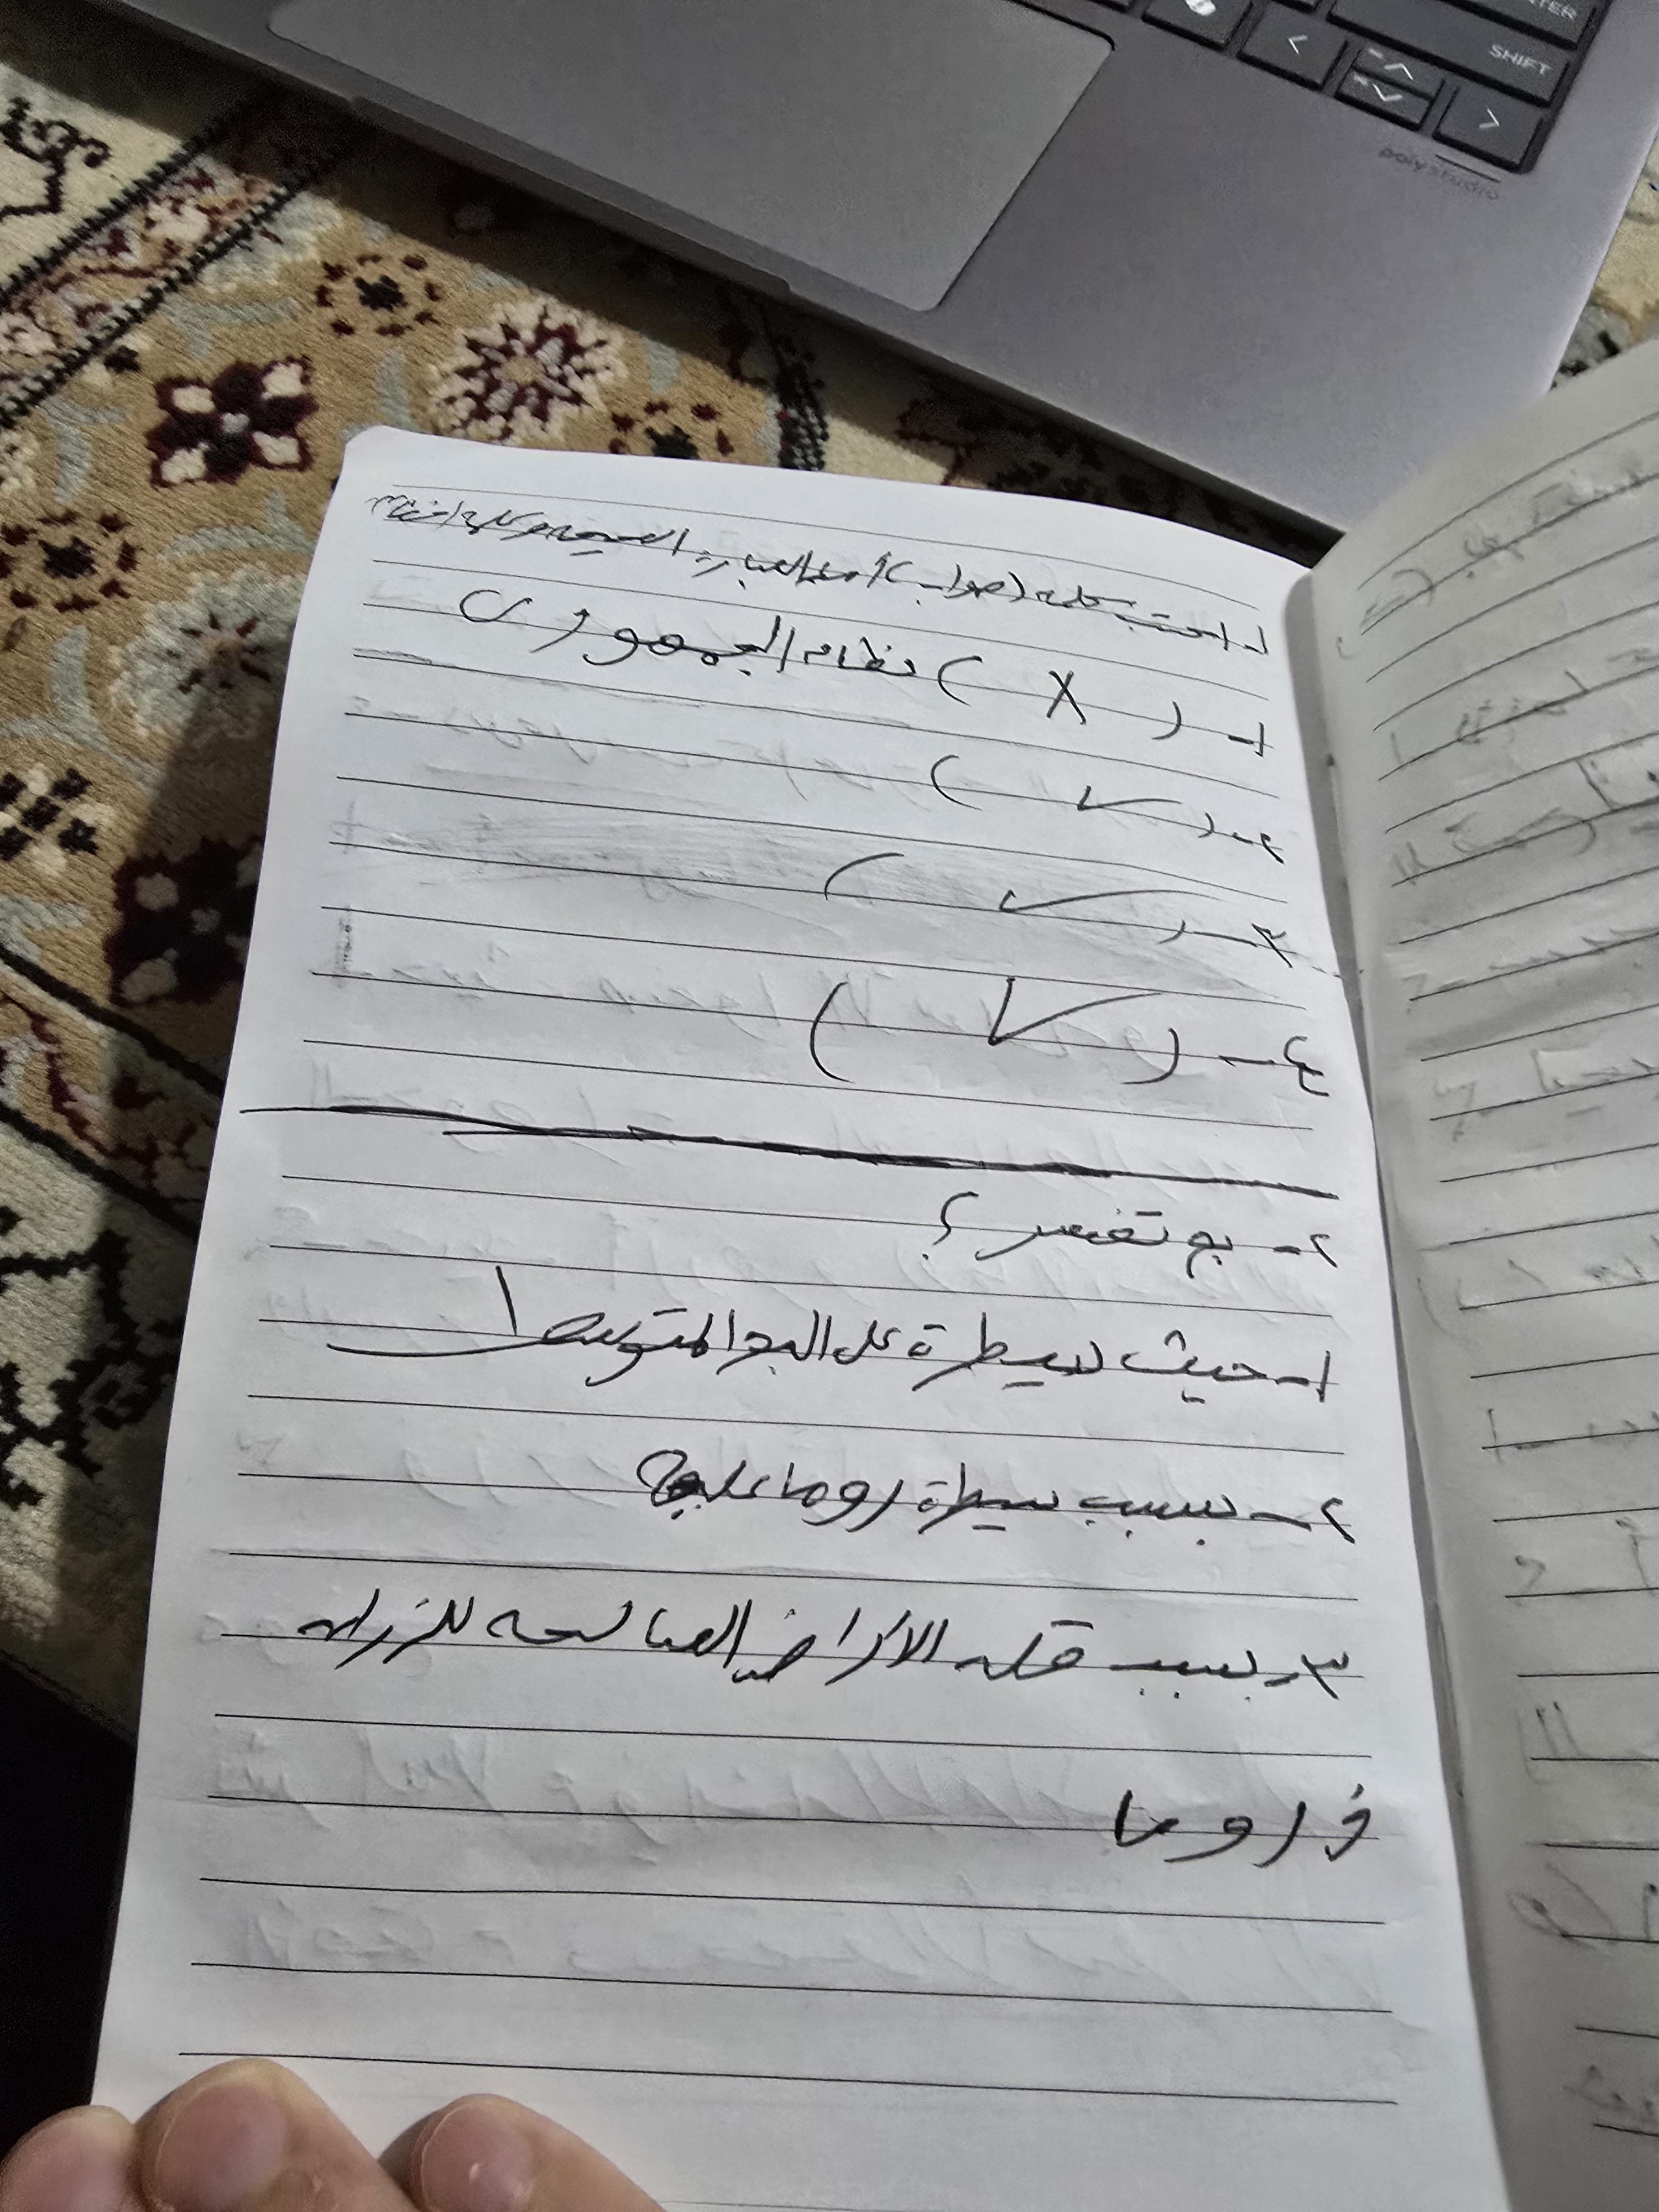 ENTER
SHIFT
poly studio
١- اكتب كلمة (صواب) أمام العبارة الصحيحة وكلمة
١- ( X ) نظام الجمهوري
٢- ( ✓ )
٣- ( ✓ )
٤- ( ✓ )
٢- بم تفسر ؟
١- حيث سيطرة على البحر المتوسط
٢- بسبب سيطرة روما عليها
٣- بسبب قله الاراضي الصالحه للزراعه
في روما